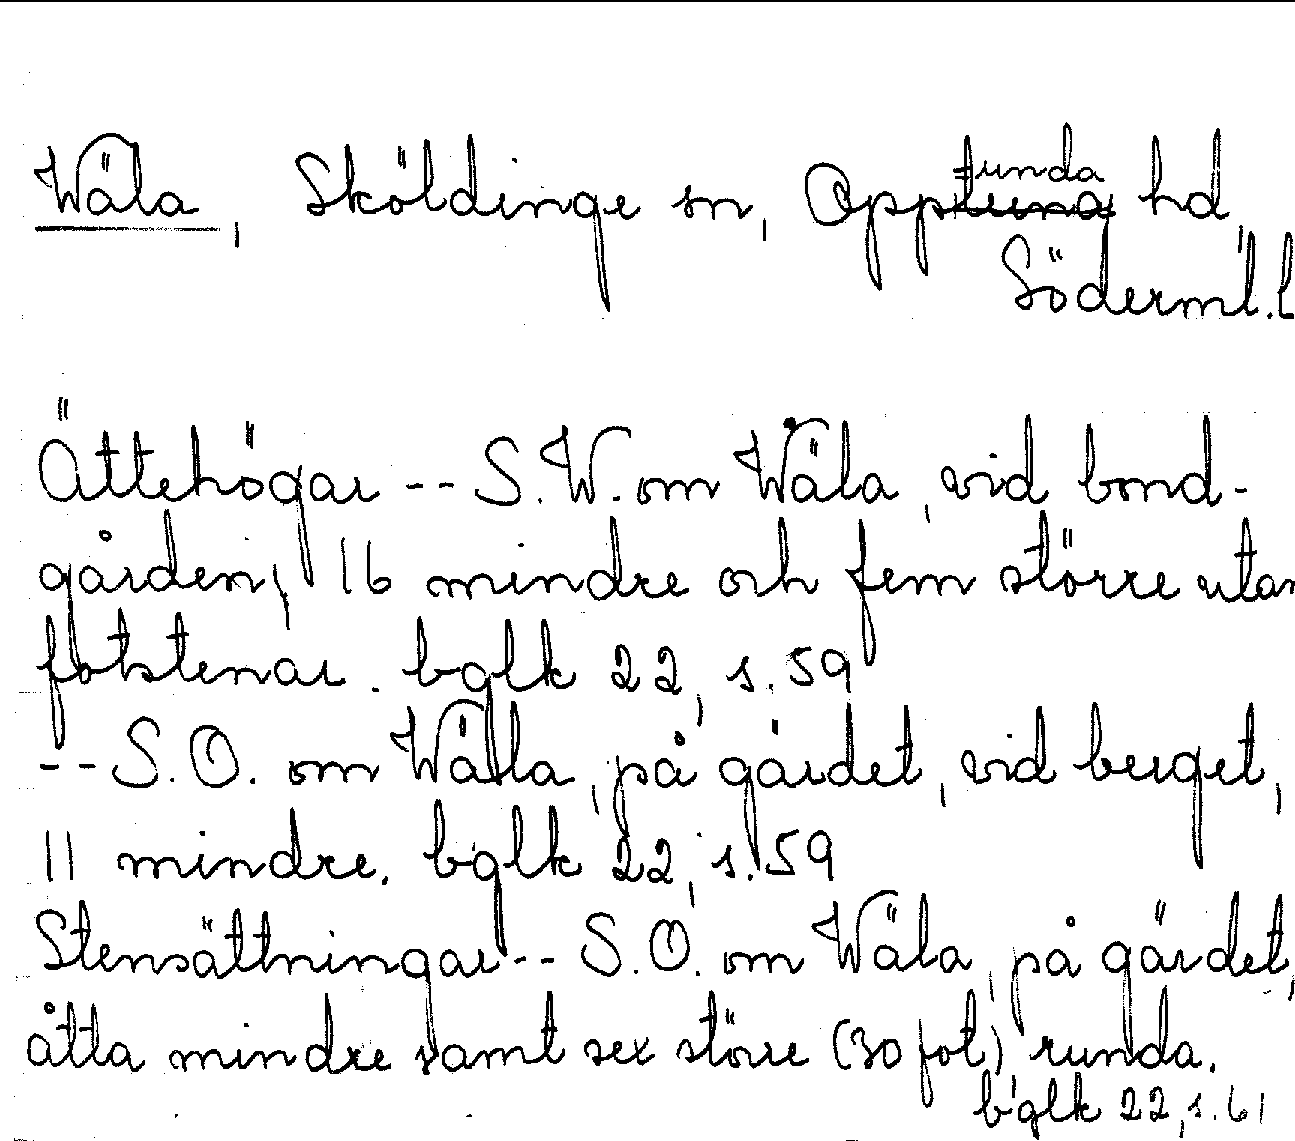 Wäla, Sköldinge sn, Opptunda hd,
Söderml.l
Ättehögar -- S.W. om Wäla, vid bond-
gården, 16 mindre och fem större utan
fotstenar. bglk 22, s.59
-- S.O. om Wäla, på gärdet, vid berget,
11 mindre. bglk 22, s.59
Stensättningar -- S.O. om Wäla, på gärdet,
åtta mindre samt sex större (30 fot) runda.
bglk 22, s.61